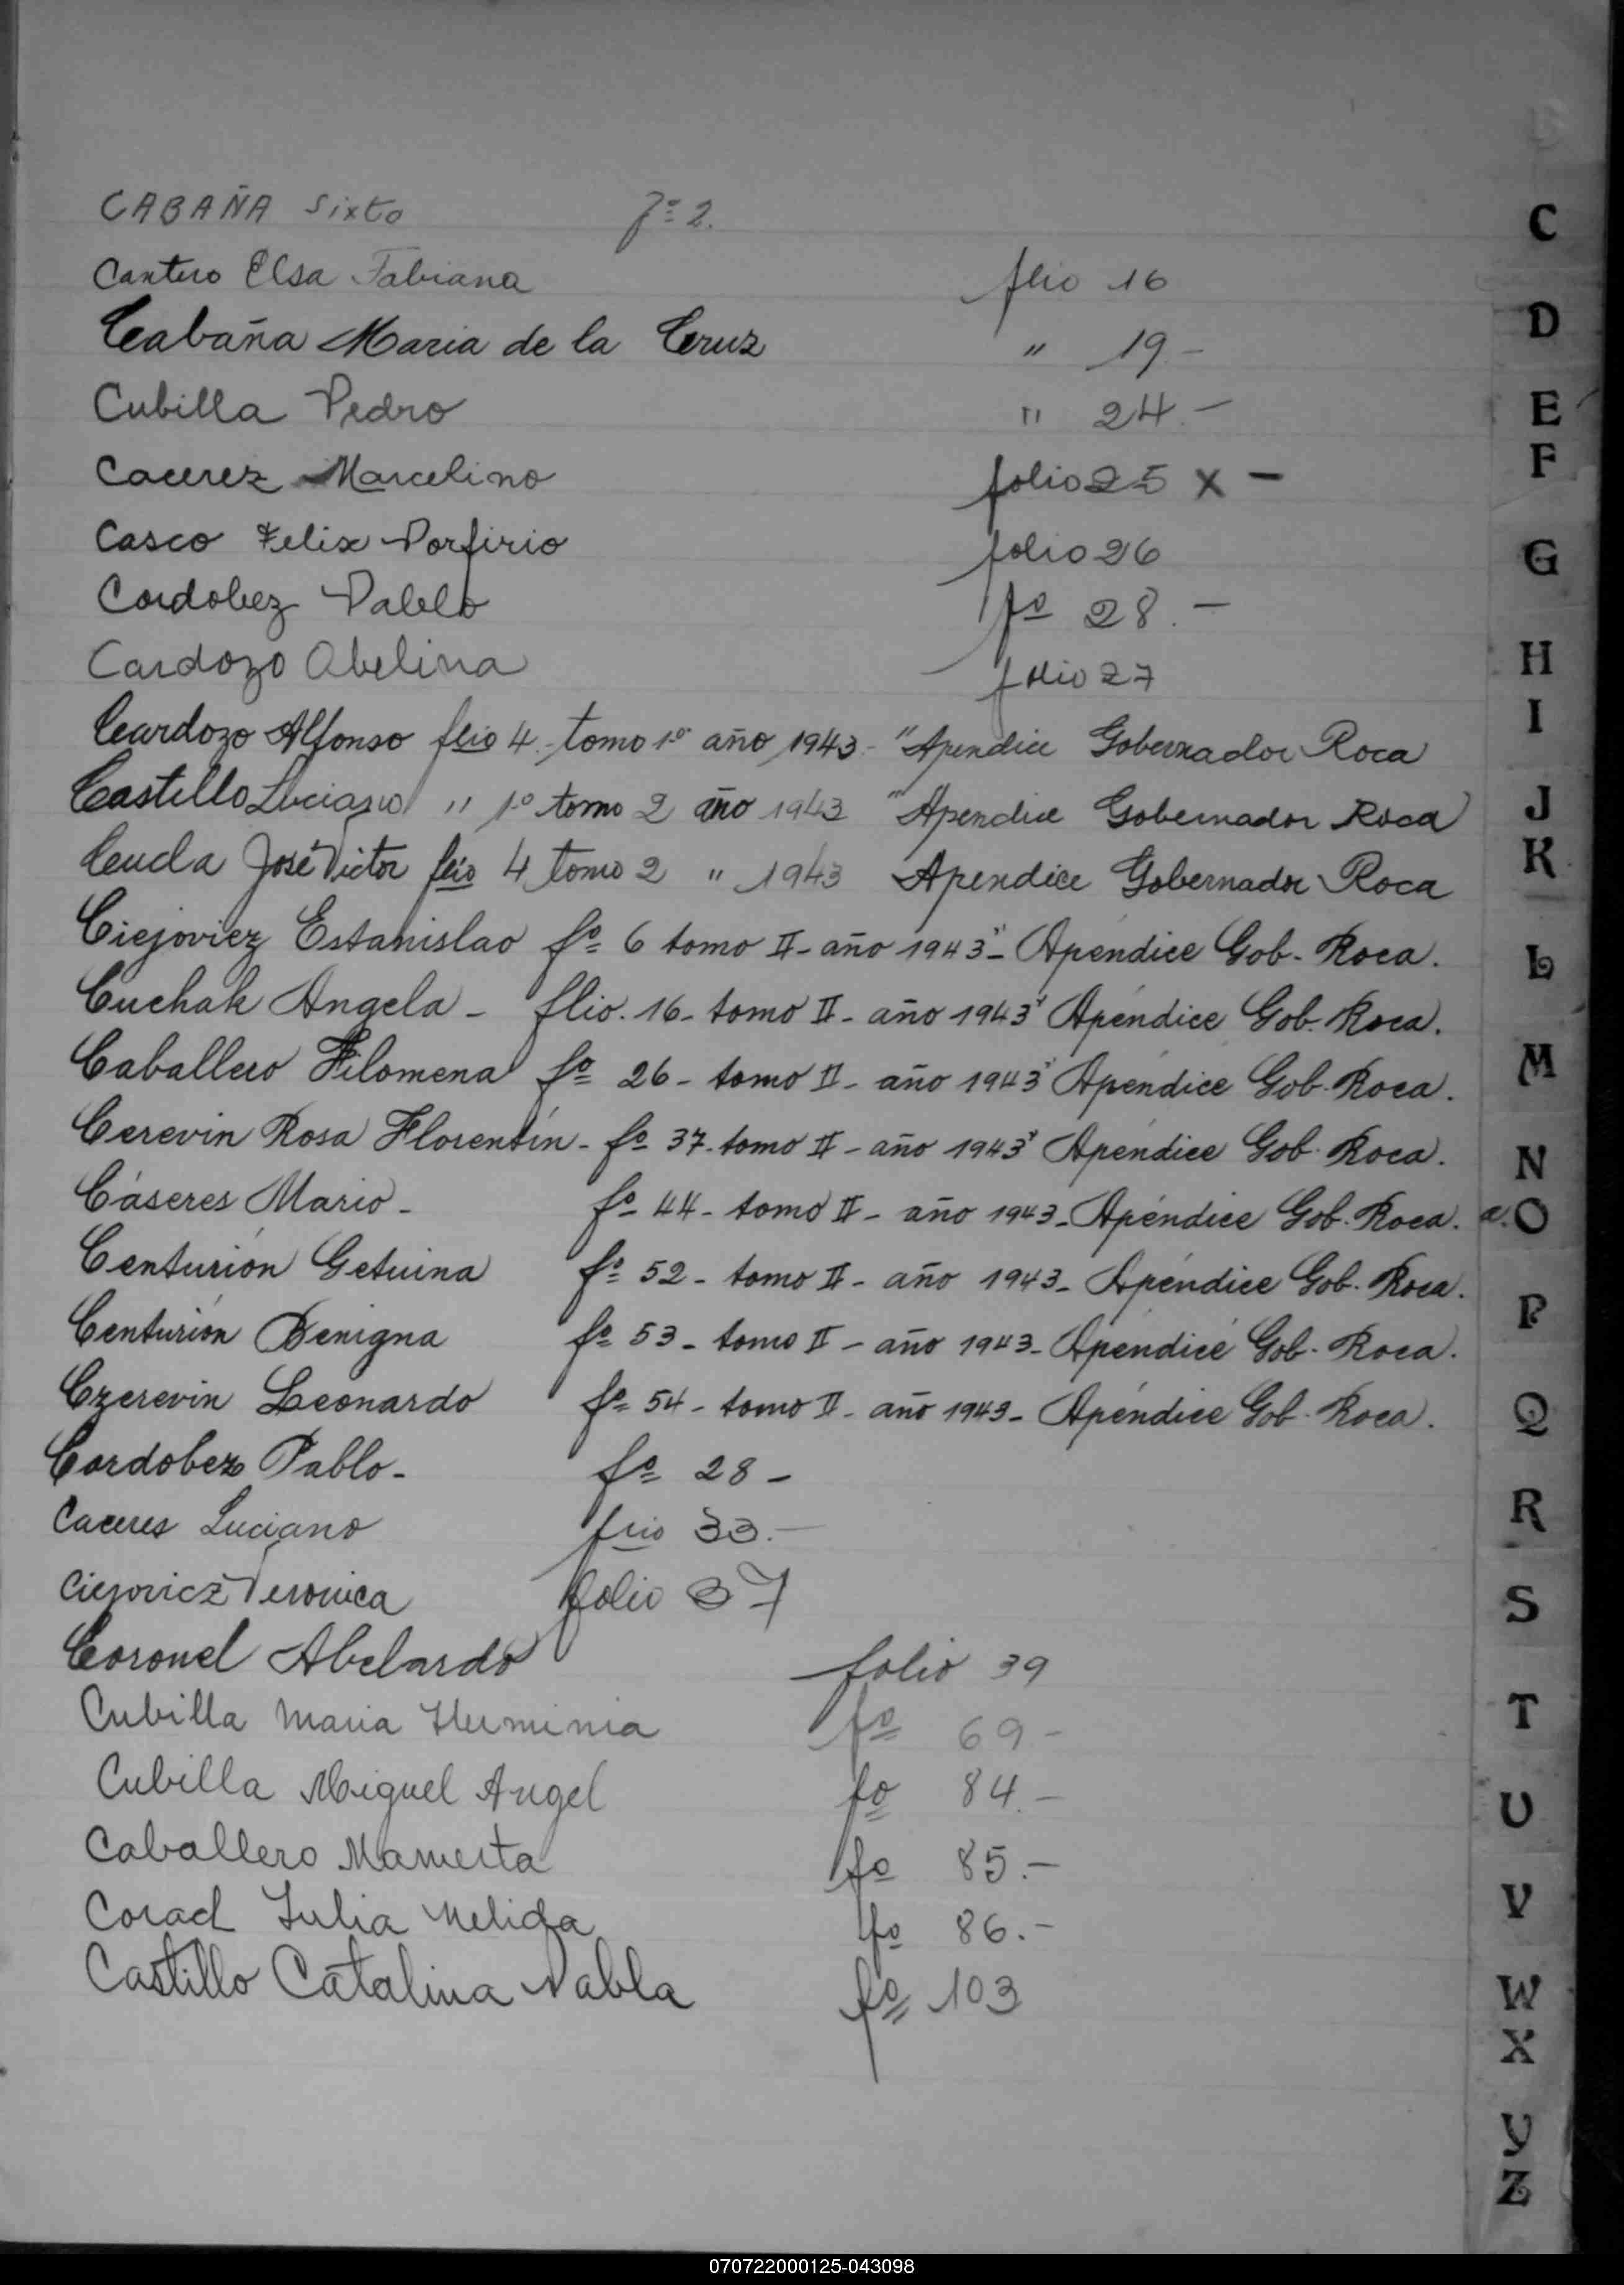 CABAÑA Sixto fº 2.
Cantero Elsa Fabiana flio 16
Cabaña Maria de la Cruz " 19.-
Cubilla Pedro " 24.-
Cacerez Marcelino folio 25 x -
Casco Felix Porfirio folio 26
Cordobez Pablo fº 28.-
Cardozo Abelina folio 27
Cardozo Alfonso flio 4.- tomo 1º año 1943 - "Apendice Gobernador Roca
Castillo Luciano " 1º tomo 2 año 1943 "Apendice Gobernador Roca
José Victor flio 4 tomo 2 " 1943 Apendice Gobernador Roca
Ciejoviez Estanislao fº 6 tomo II - año 1943"- Apéndice Gob. Roca.
Cuchak Angela - flio. 16 - tomo II - año 1943" Apéndice Gob. Roca.
Caballero Filomena fº 26 - tomo II - año 1943" Apéndice Gob. Roca.
Cerevin Rosa Florentín - fº 37 - tomo II - año 1943" Apéndice Gob. Roca.
Cáseres Mario - fº 44 - tomo II - año 1943 - Apéndice Gob. Roca. a.
Centurión Getuina fº 52 - tomo II - año 1943 - Apéndice Gob. Roca.
Centurión Benigna fº 53 - tomo II - año 1943 - Apéndice Gob. Roca.
Czerevin Leonardo fº 54 - tomo II - año 1943 - Apéndice Gob. Roca.
Cordobez Pablo - fº 28 -
Caceres Luciano flio 33.-
Ciejovicz Veronica folio 37
Coronel Abelardo folio 39
Cubilla Maria Herminia fº 69 -
Cubilla Miguel Angel fº 84.-
Caballero Mamerta fº 85.-
Corach Julia Nelida fº 86.-
Castillo Catalina Pabla fº 103
C
D
E
F
G
H
I
J
K
L
M
N
O
P
Q
R
S
T
U
V
W
X
Y
Z
070722000125-043098